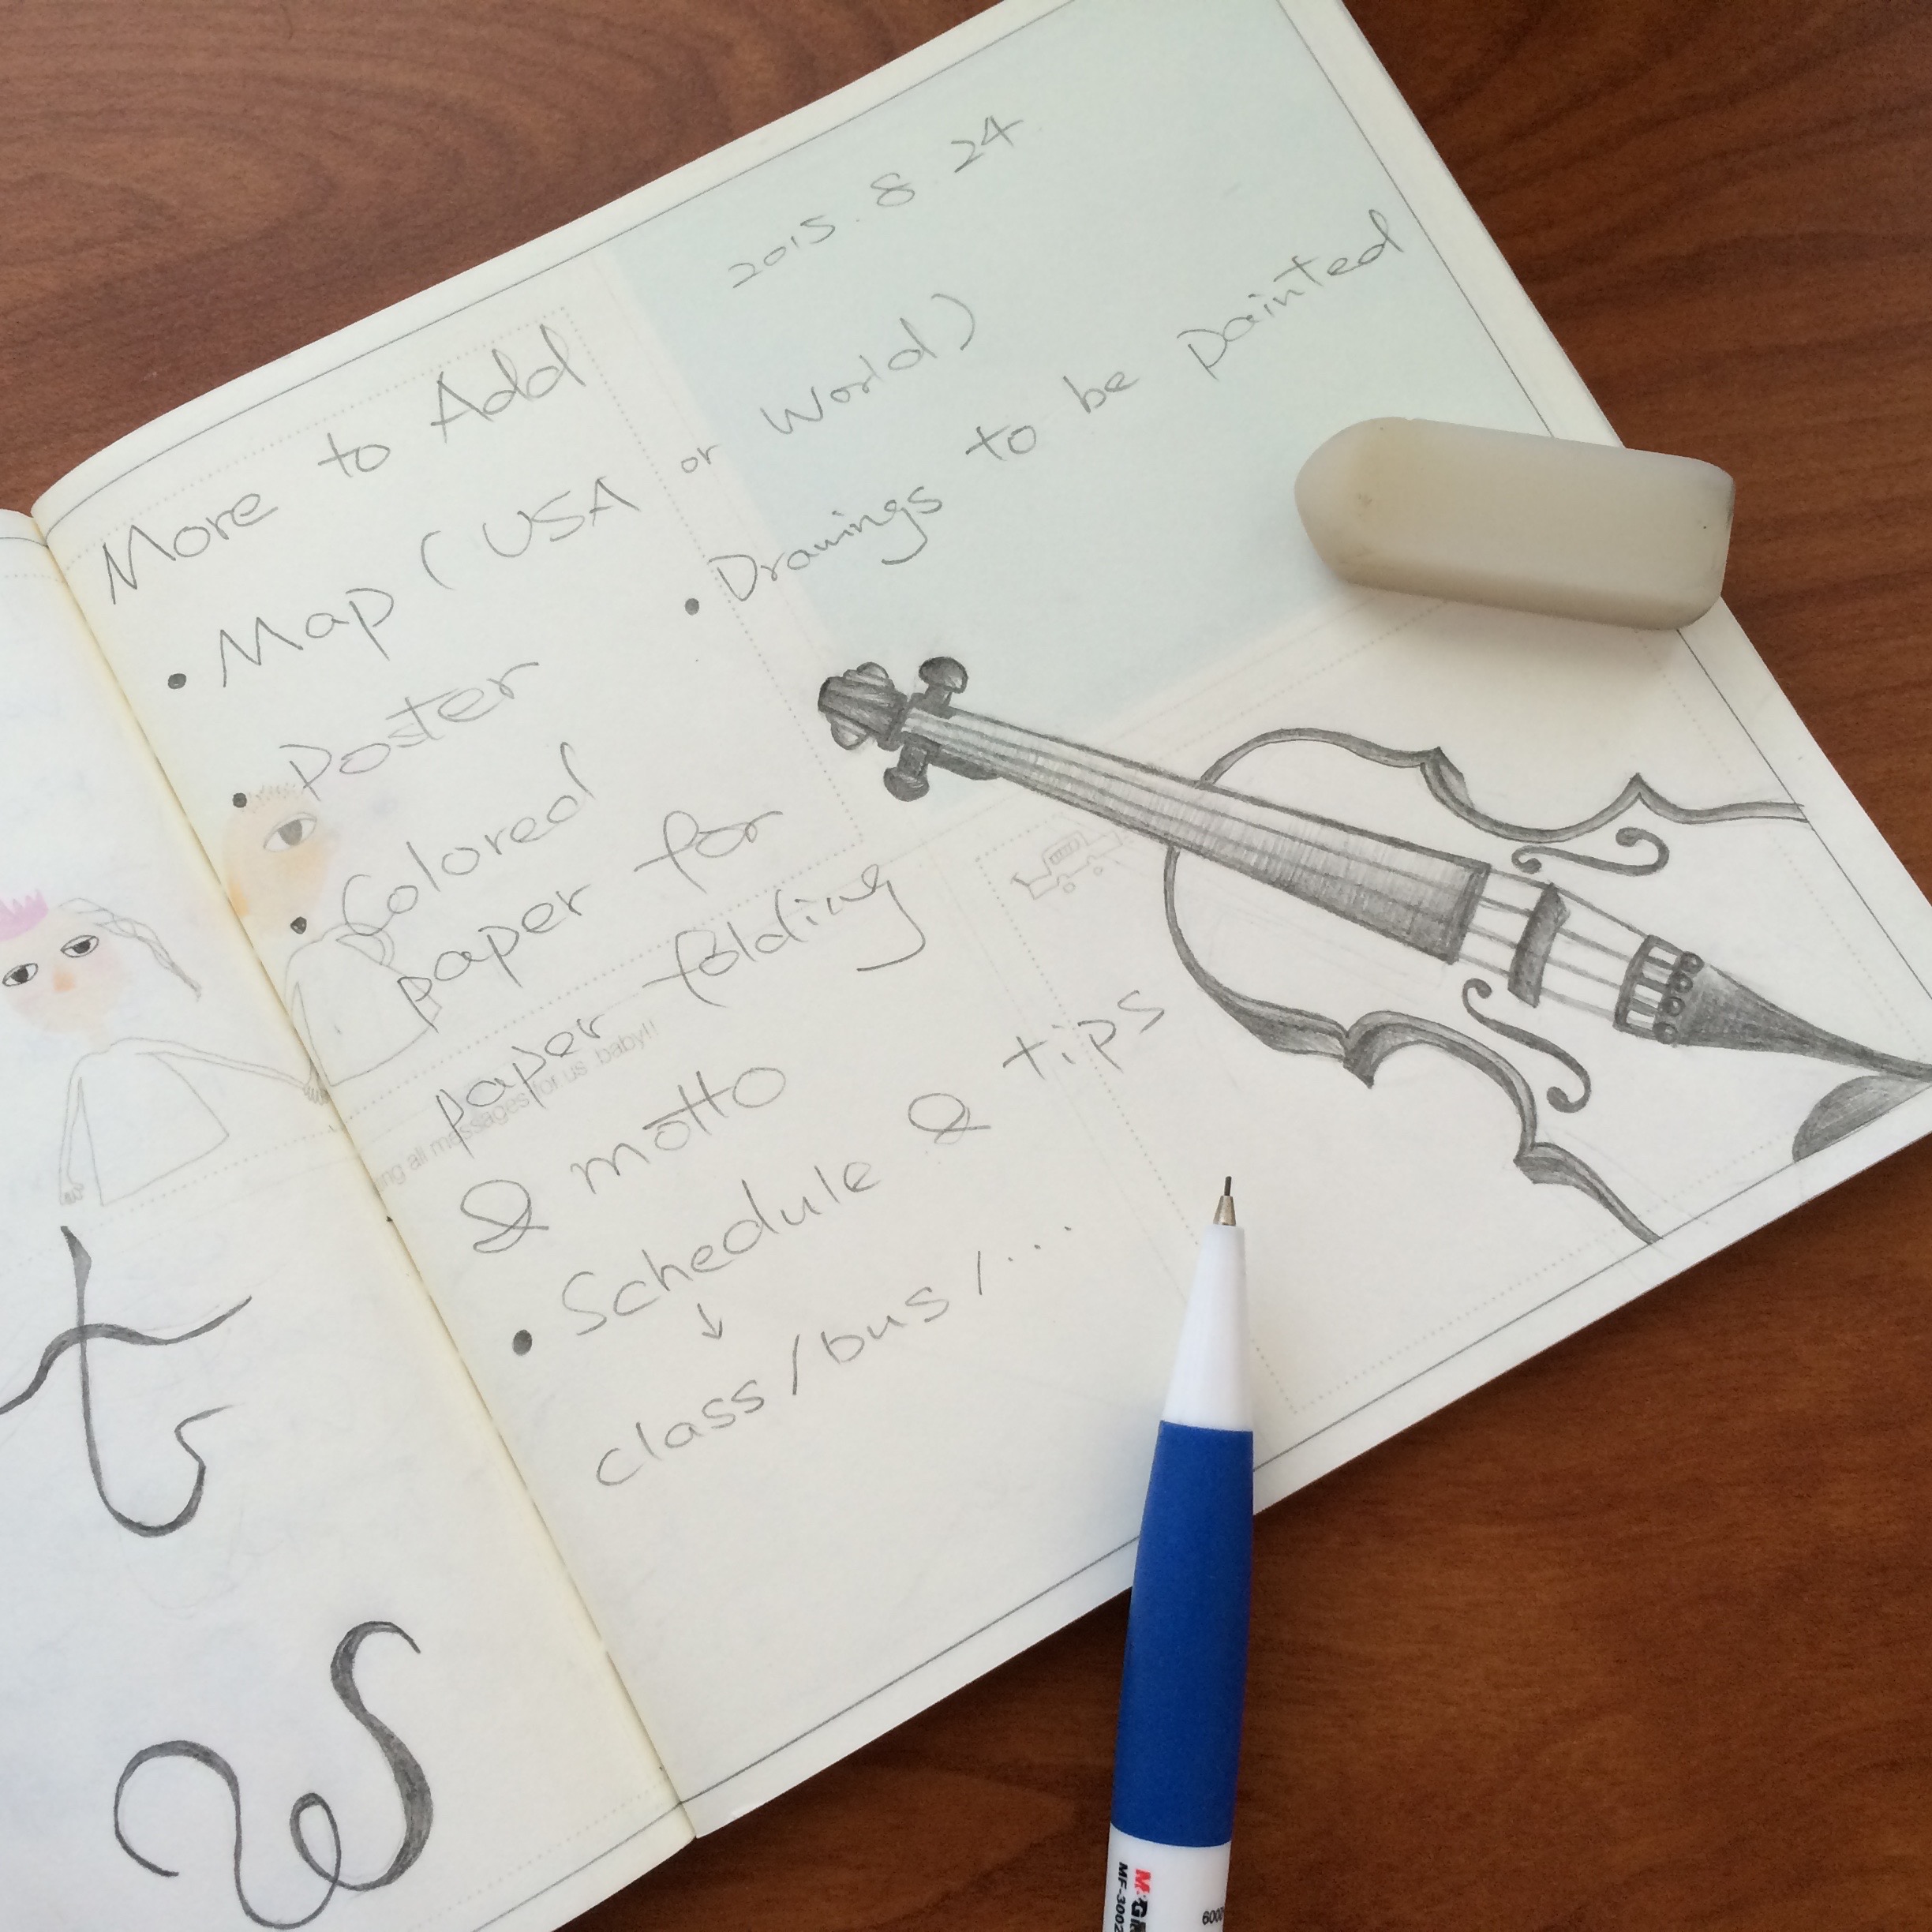 2015.8.24
More to Add
• Map (USA or World)
• Drawings to be painted
• Poster
• Colored
paper for
paper folding
& motto
• Schedule & tips
↓
class / bus / ...
ng all messages for us baby!!
t
W
M&G
MF-3002